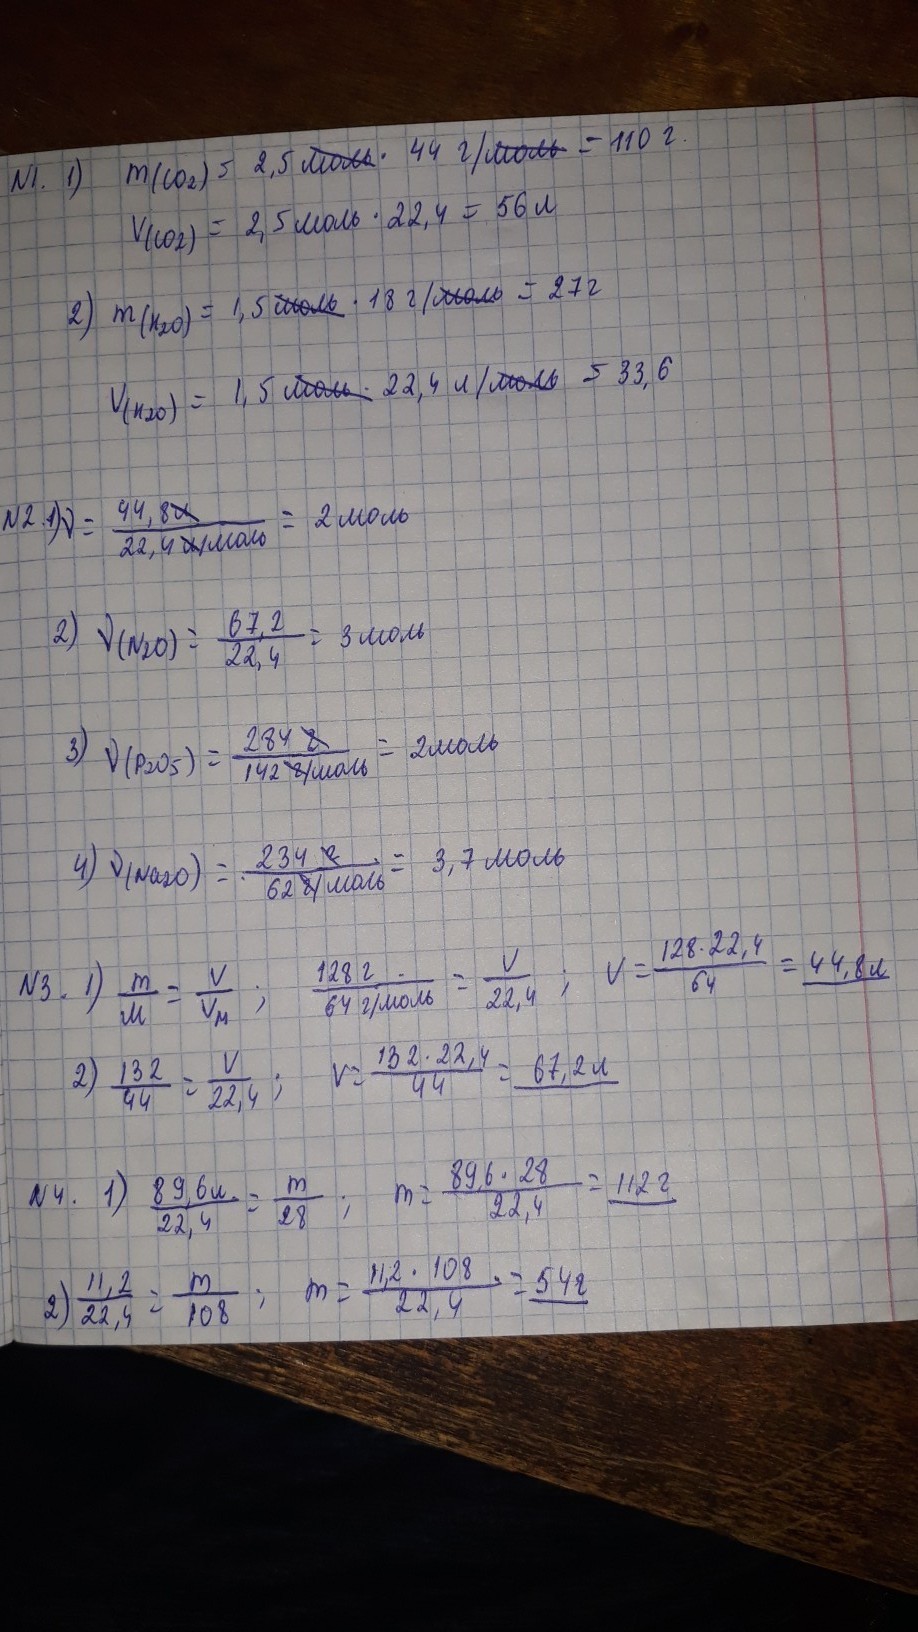 N1. 1) m(CO2) = 2,5 моль · 44 г/моль = 110 г.
V(CO2) = 2,5 моль · 22,4 = 56 л
2) m(H2O) = 1,5 моль · 18 г/моль = 27 г
V(H2O) = 1,5 моль · 22,4 л/моль = 33,6
N2. 1) ν = 44,8 л / 22,4 л/моль = 2 моль
2) ν(N2O) = 67,2 / 22,4 = 3 моль
3) ν(P2O5) = 284 г / 142 г/моль = 2 моль
4) ν(Na2O) = 234 г / 62 г/моль = 3,7 моль
N3. 1) m/M = V/Vм ; 128 г / 64 г/моль = V / 22,4 ; V = 128 · 22,4 / 64 = 44,8 л
2) 132 / 44 = V / 22,4 ; V = 132 · 22,4 / 44 = 67,2 л
N4. 1) 89,6 л / 22,4 = m / 28 ; m = 89,6 · 28 / 22,4 = 112 г
2) 11,2 / 22,4 = m / 108 ; m = 11,2 · 108 / 22,4 = 54 г